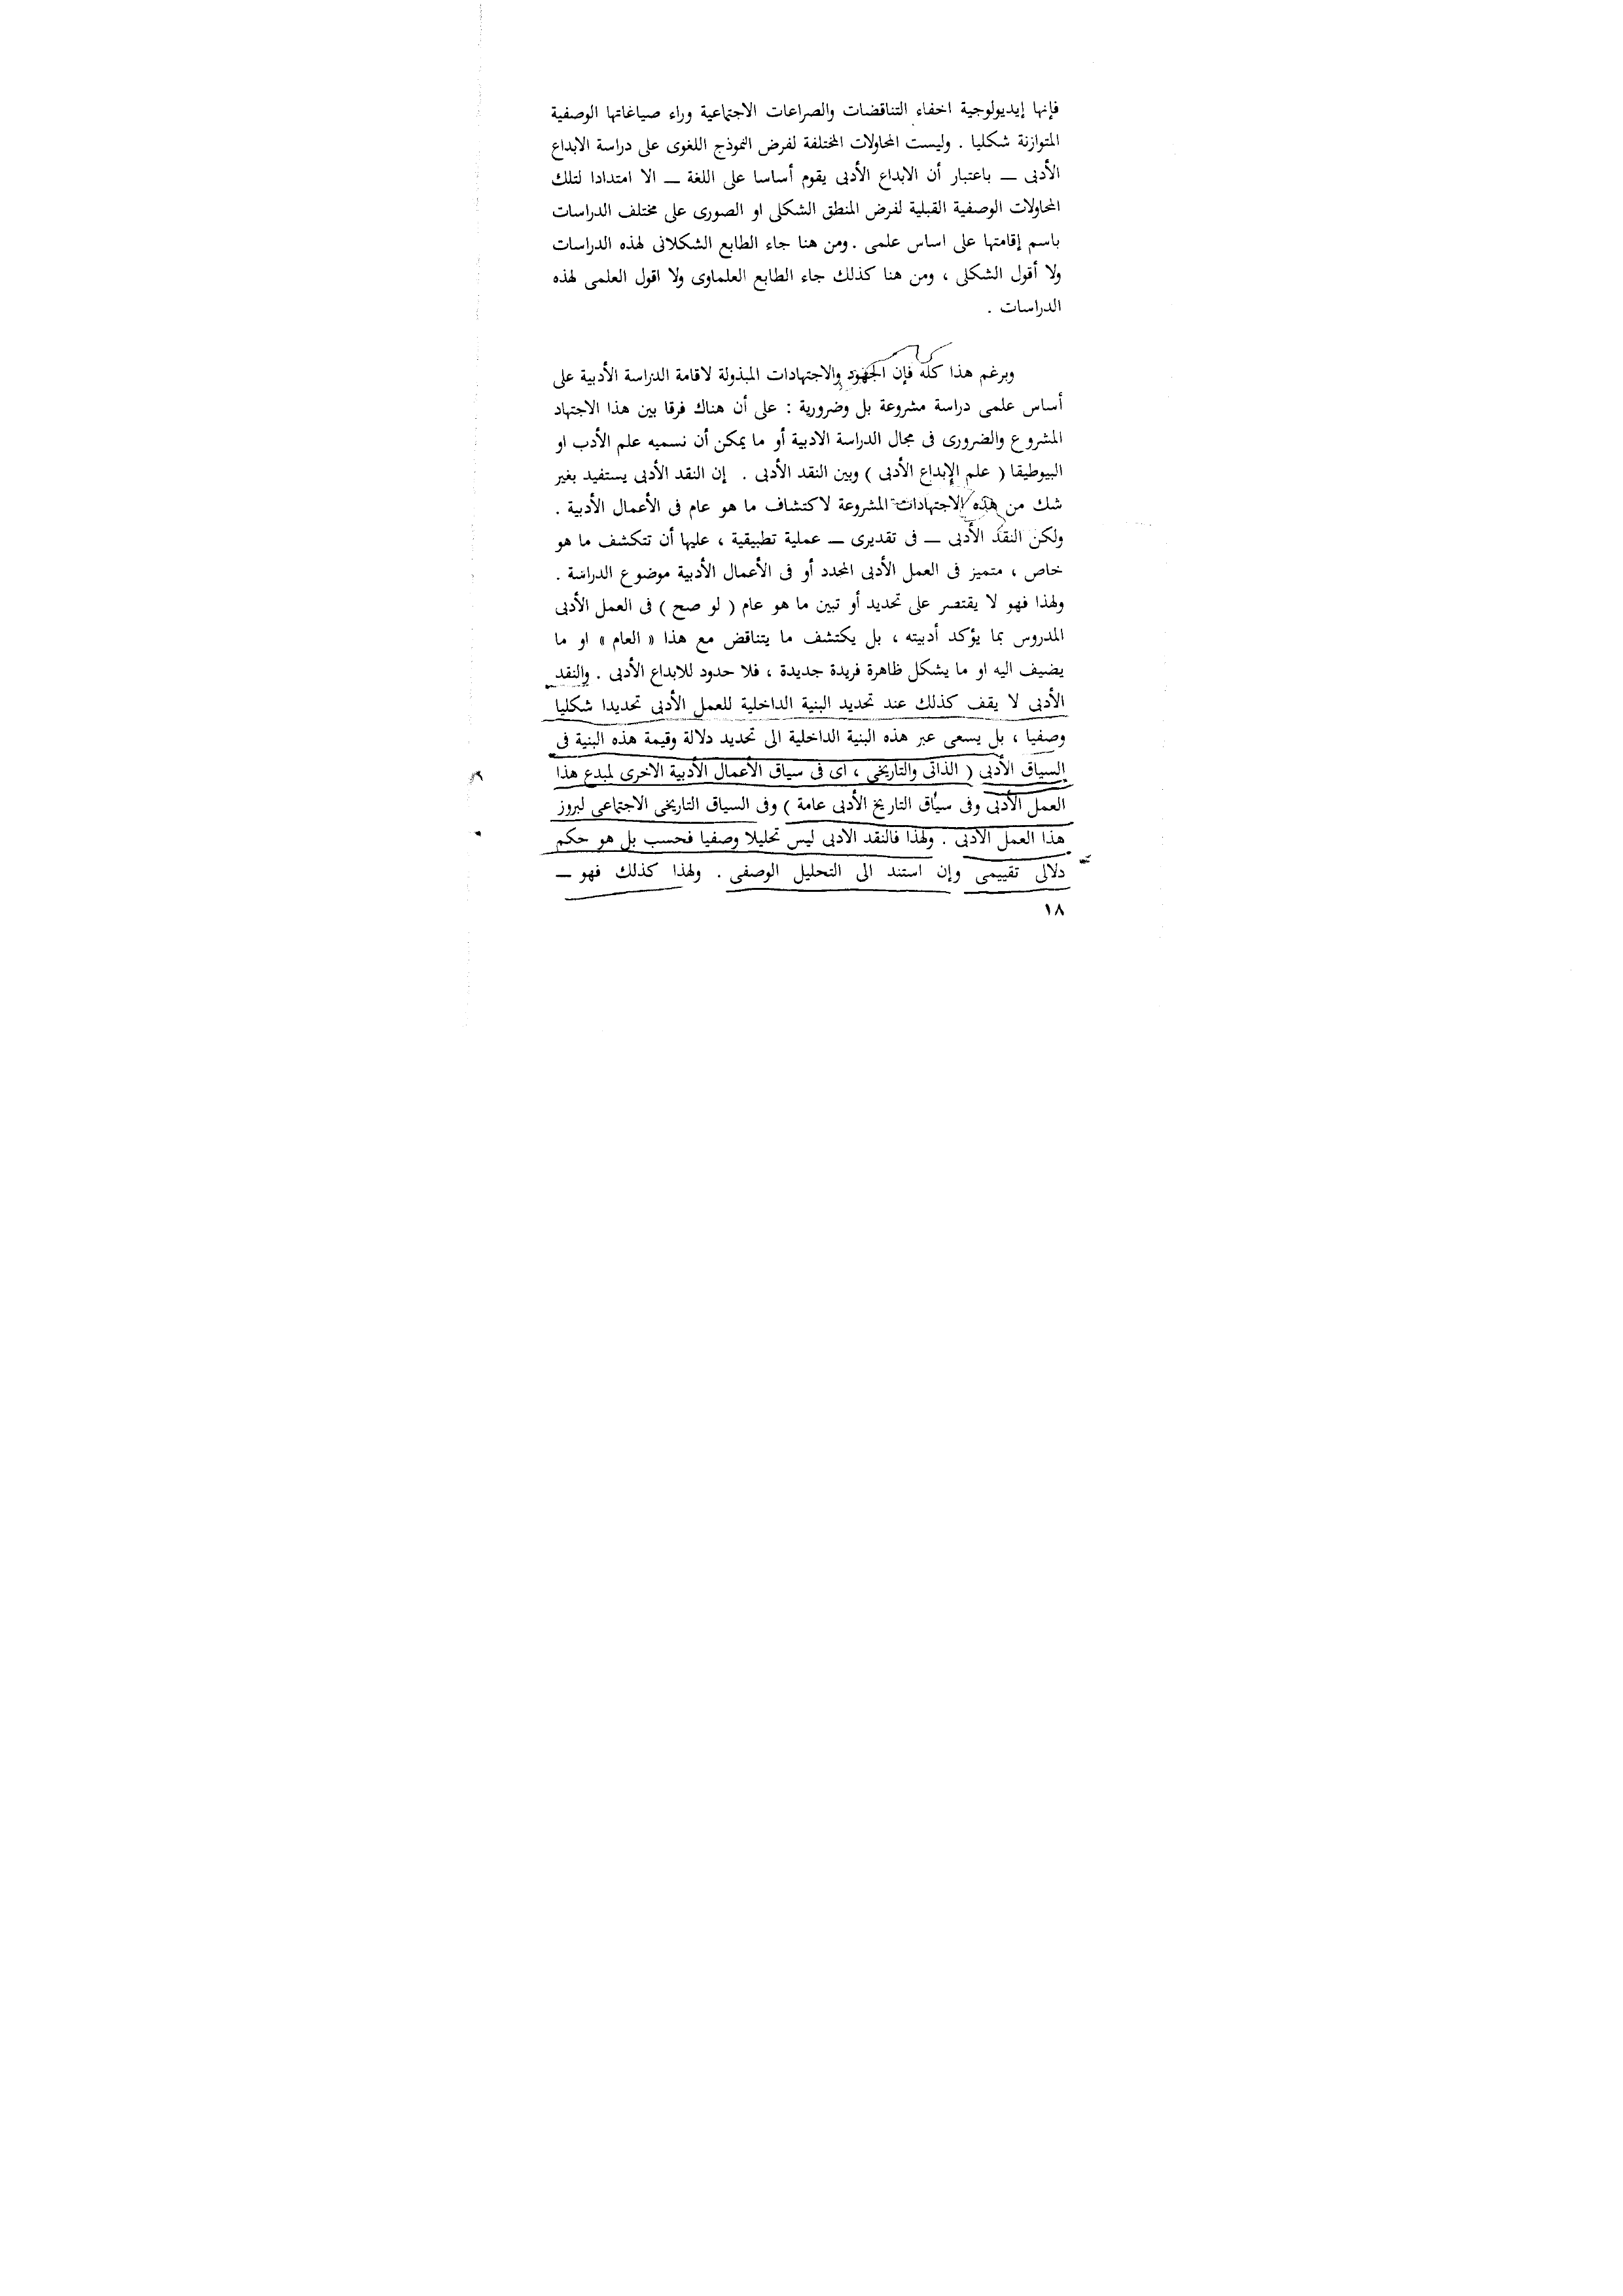 فإنها إيديولوجية اخفاء التناقضات والصراعات الاجتماعية وراء صياغاتها الوصفية
المتوازنة شكليا . وليست المحاولات المختلفة لفرض النموذج اللغوى على دراسة الابداع
الأدبى ــ باعتبار أن الابداع الأدبى يقوم أساسا على اللغة ــ الا امتدادا لتلك
المحاولات الوصفية القبلية لفرض المنطق الشكلى او الصورى على مختلف الدراسات
باسم إقامتها على اساس علمى . ومن هنا جاء الطابع الشكلانى لهذه الدراسات
ولا أقول الشكلى ، ومن هنا كذلك جاء الطابع العلماوى ولا اقول العلمى لهذه
الدراسات .
وبرغم هذا كله فإن الجهود والاجتهادات المبذولة لاقامة الدراسة الأدبية على
أساس علمى دراسة مشروعة بل وضرورية : على أن هناك فرقا بين هذا الاجتهاد
المشروع والضرورى فى مجال الدراسة الادبية أو ما يمكن أن نسميه علم الأدب او
البيوطيقا ( علم الإبداع الأدبى ) وبين النقد الأدبى . إن النقد الأدبى يستفيد بغير
شك من هذه الاجتهادات المشروعة لاكتشاف ما هو عام فى الأعمال الأدبية .
ولكن النقد الأدبى ــ فى تقديرى ــ عملية تطبيقية ، عليها أن تتكشف ما هو
خاص ، متميز فى العمل الأدبى المحدد أو فى الأعمال الأدبية موضوع الدراسة .
ولهذا فهو لا يقتصر على تحديد أو تبين ما هو عام ( لو صح ) فى العمل الأدبى
المدروس بما يؤكد أدبيته ، بل يكتشف ما يتناقض مع هذا « العام » او ما
يضيف اليه او ما يشكل ظاهرة فريدة جديدة ، فلا حدود للابداع الأدبى . والنقد
الأدبى لا يقف كذلك عند تحديد البنية الداخلية للعمل الأدبى تحديدا شكليا
وصفيا ، بل يسعى عبر هذه البنية الداخلية الى تحديد دلالة وقيمة هذه البنية فى
السياق الأدبى ( الذاتى والتاريخى ، اى فى سياق الأعمال الأدبية الاخرى لمبدع هذا
العمل الأدبى وفى سياق التاريخ الأدبى عامة ) وفى السياق التاريخى الاجتماعى لبروز
هذا العمل الادبى . ولهذا فالنقد الادبى ليس تحليلا وصفيا فحسب بل هو حكم
دلالى تقييمى وإن استند الى التحليل الوصفى . ولهذا كذلك فهو ــ
١٨